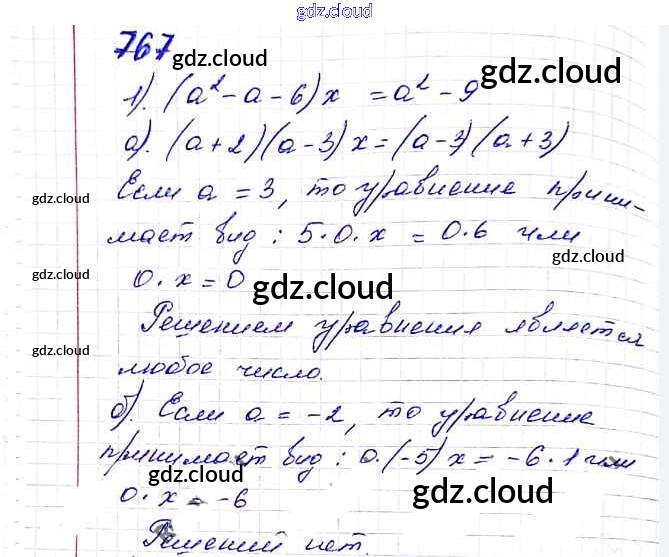 gdz.cloud
767 gdz.cloud
gdz.cloud
1). (a² - a - 6) x = a² - 9
а). (a + 2)(a - 3) x = (a - 3)(a + 3)
Если a = 3, то уравнение прини-
gdz.cloud
мает вид: 5·0·x = 0·6 или
gdz.cloud
0·x = 0
gdz.cloud
Решением уравнения является
gdz.cloud
любое число.
б). Если a = -2, то уравнение
принимает вид: 0·(-5)x = -6·1 или
gdz.cloud
0·x = -6
gdz.cloud
Решений нет.